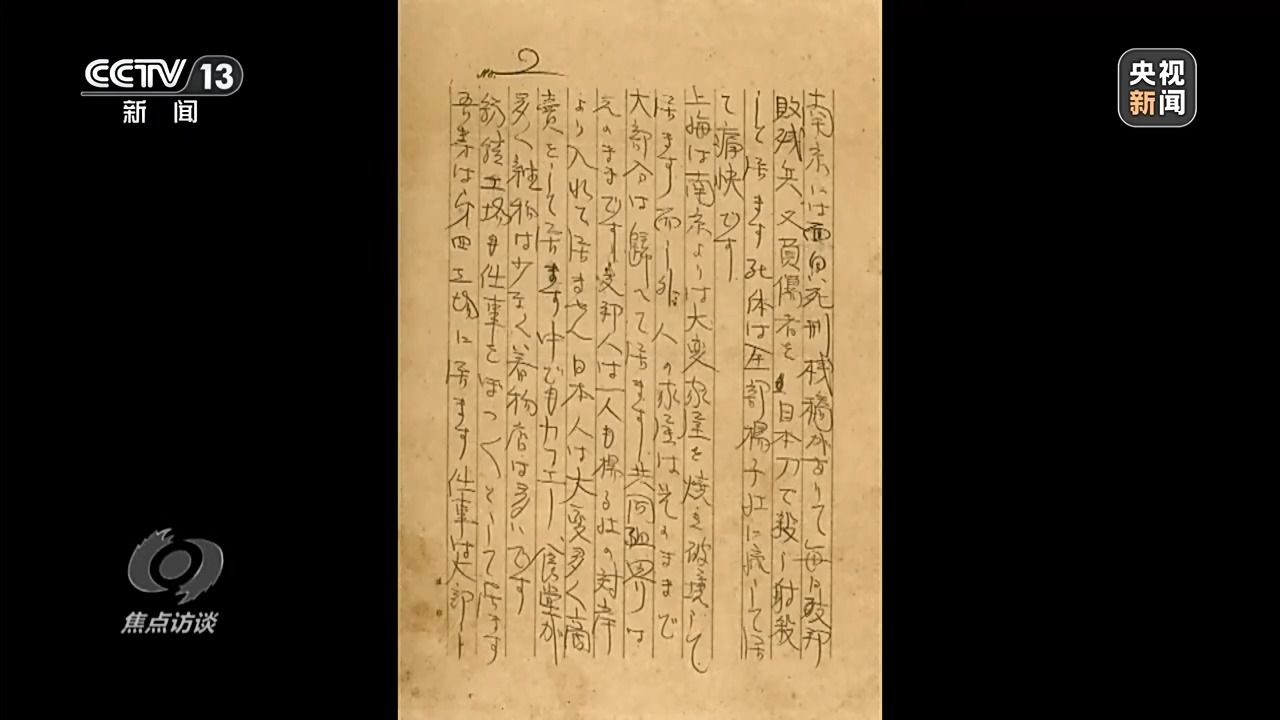 CCTV 13
新闻
央视
新闻
No. 2
南京には面白い死刑棧橋がありて毎日支那
敗残兵又負傷者を日本刀で殺し射殺
して居ます死体は全部楊子江に流して居
て痛快です
上海は南京よりは大変家屋を焼き破壊して
居ます而し外人の家屋は其のままで
大部分は帰へて居ます共同租界は
元のままです支那人は一人も楊子江の対岸
より入れて居ません日本人は大変多く商
賣をして居ます中でもカフエー食堂が
多く雑物は少なく着物店は多いです
紡績工場も仕事をぼつ〱として居ます
吾等は第四工場に居ます仕事は大部
焦点访谈